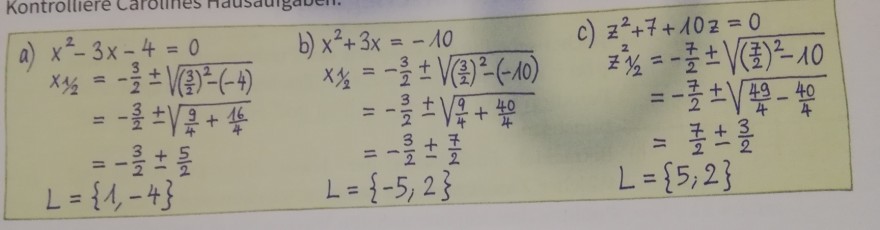 Kontrolliere Carolines Hausaufgaben.
a) x² - 3x - 4 = 0
x½ = -3/2 ± √((3/2)² - (-4))
= -3/2 ± √(9/4 + 16/4)
= -3/2 ± 5/2
L = {1, -4}
b) x² + 3x = -10
x½ = -3/2 ± √((3/2)² - (-10))
= -3/2 ± √(9/4 + 40/4)
= -3/2 ± 7/2
L = {-5; 2}
c) z² + 7 + 10z = 0
z²½ = -7/2 ± √((7/2)² - 10)
= -7/2 ± √(49/4 - 40/4)
= 7/2 ± 3/2
L = {5; 2}